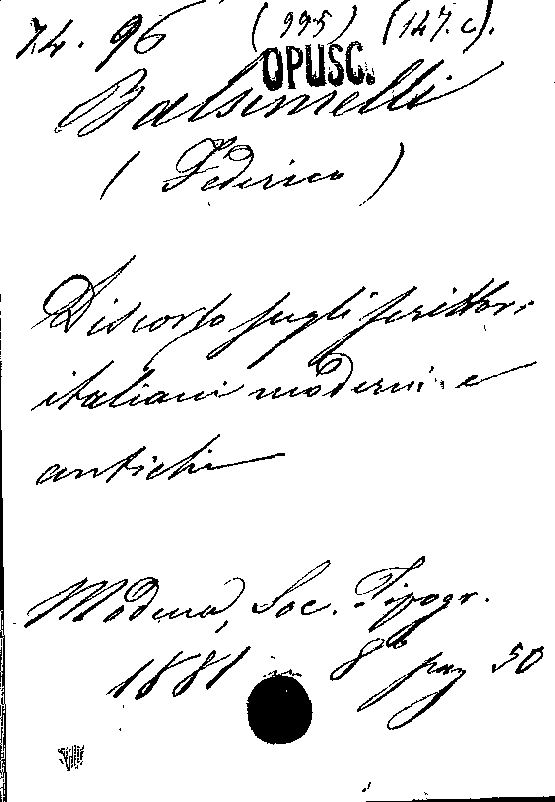 74. 96 (995) (147. c).
OPUSC.
Balsimelli
( Federico )
Discorso sugli scrittori
italiani moderni e
antichi
Modena, Soc. Tipogr.
1881 in 8° pag 50